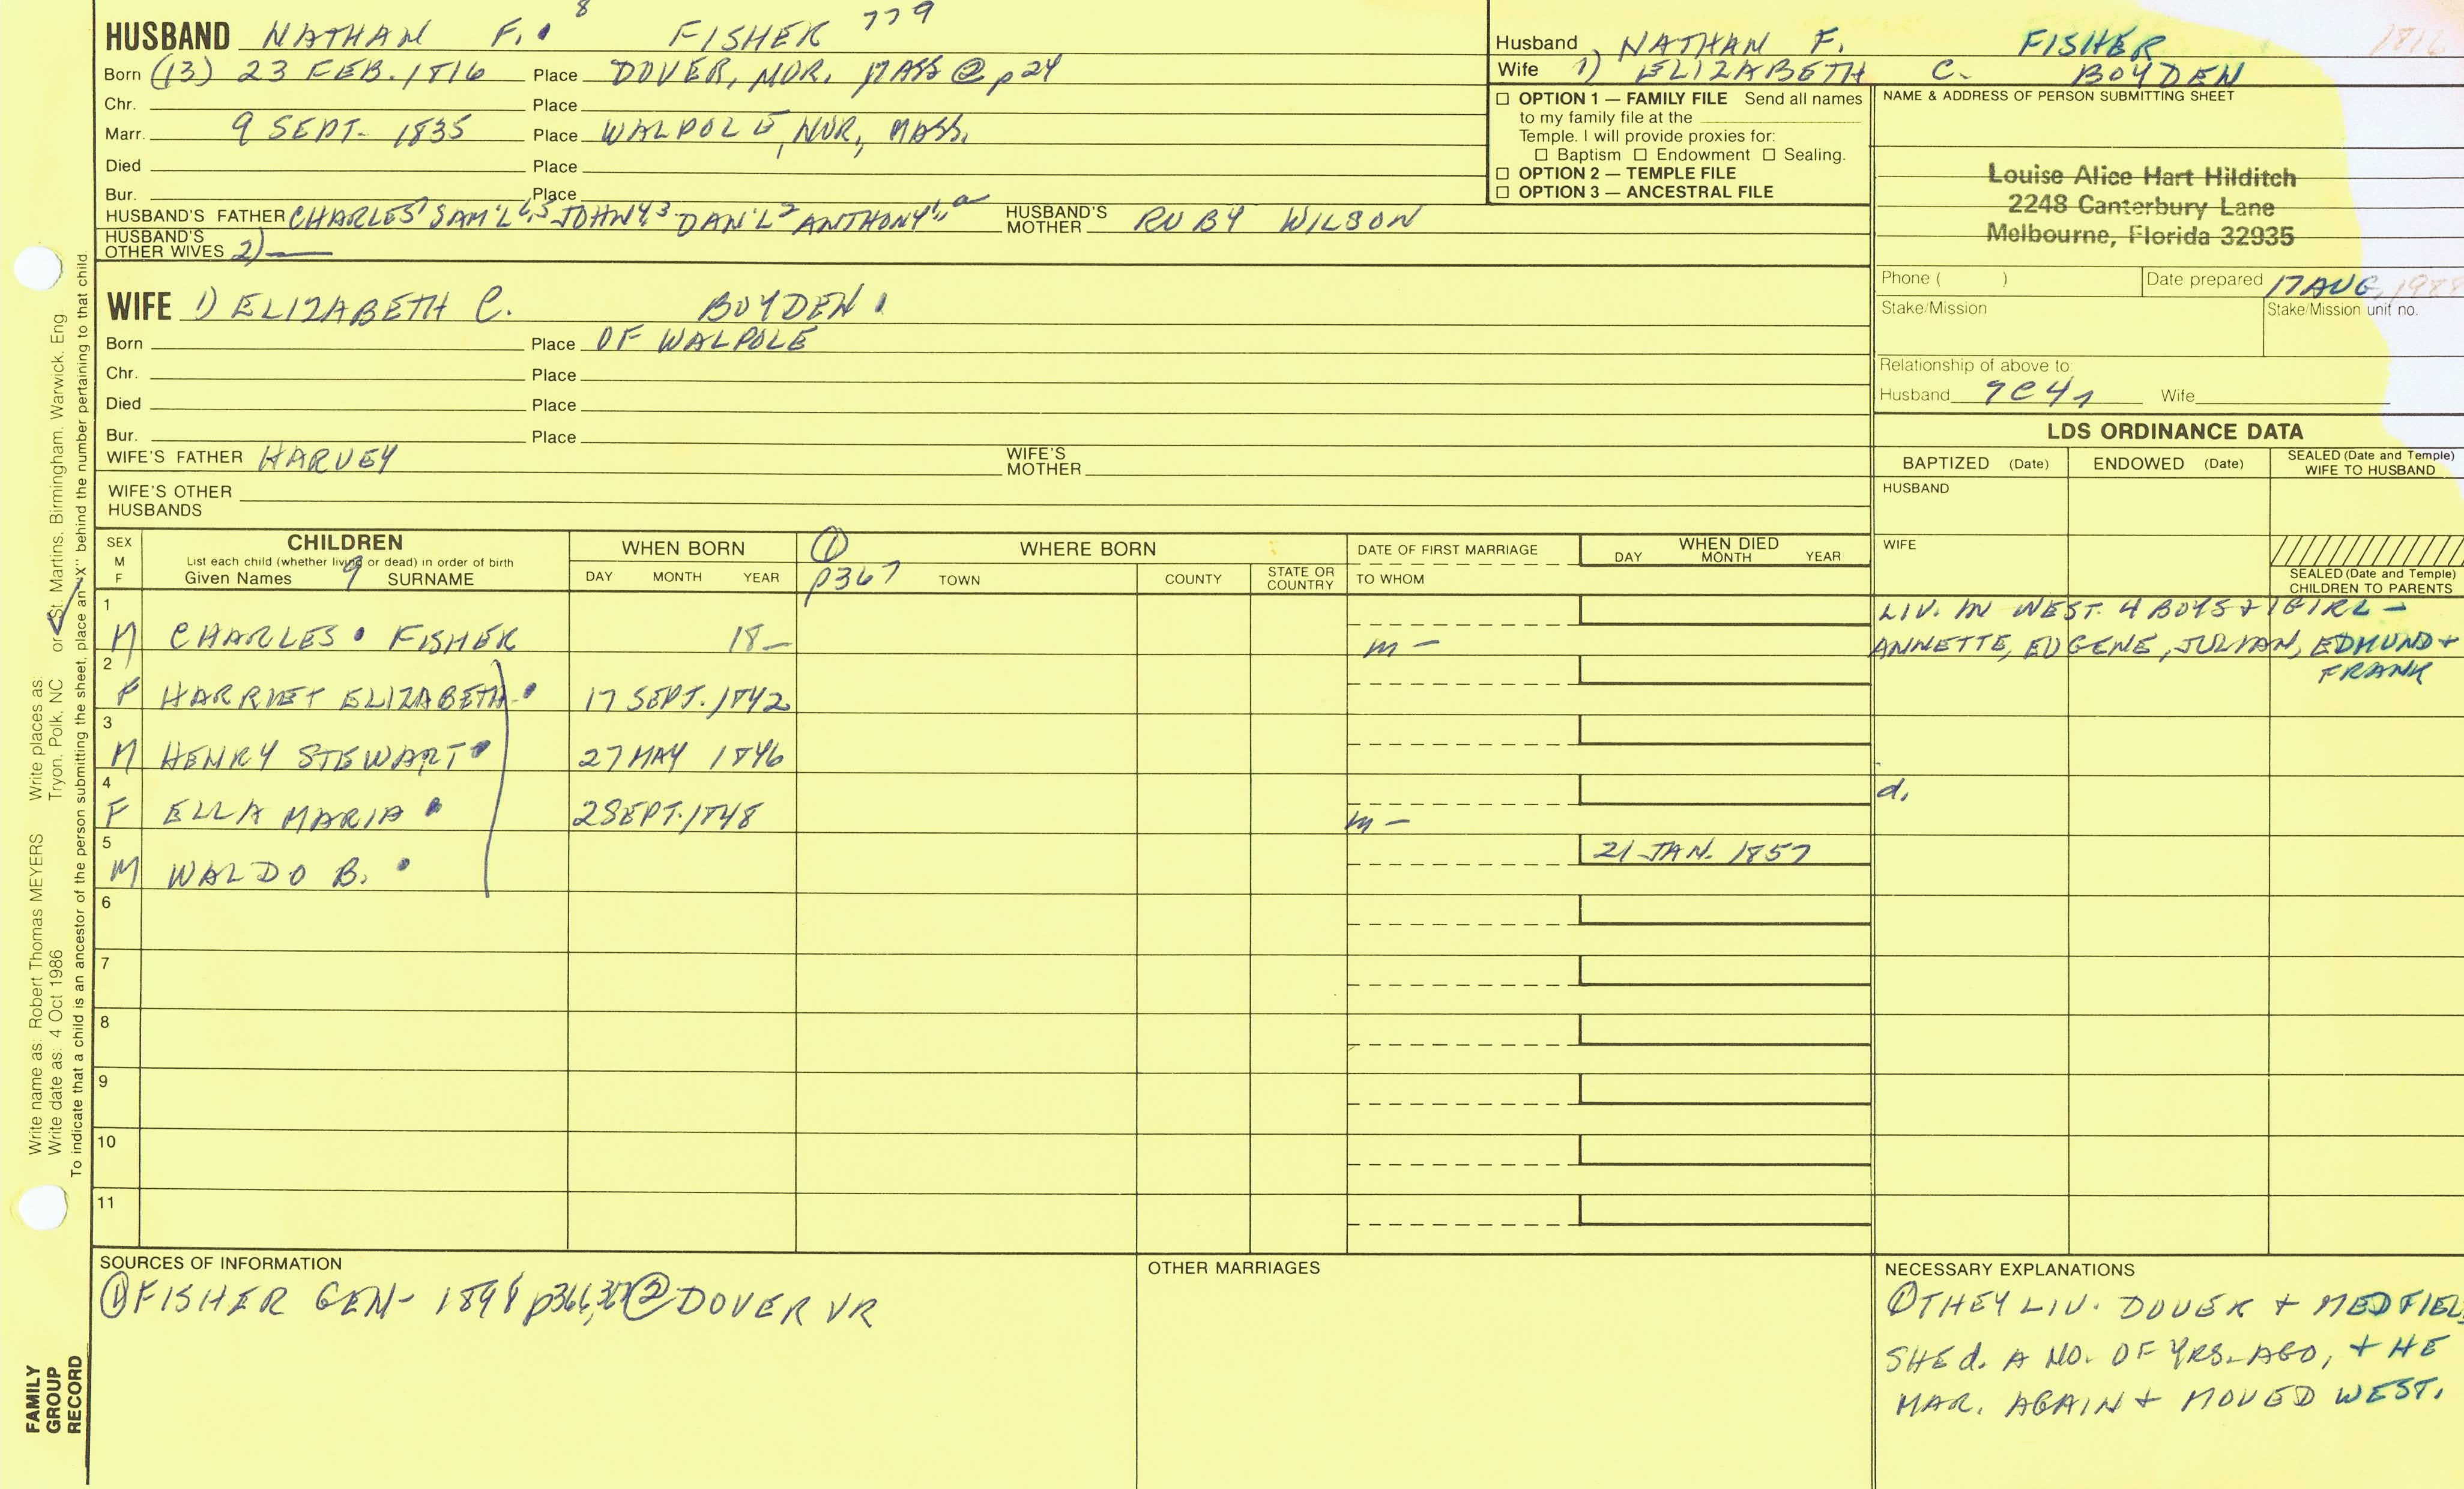 HUSBAND NATHAN F. 8 FISHER 779
Born (13) 23 FEB. 1816 Place DOVER, NOR. MASS @ p24
Chr. Place
Marr. 9 SEPT. 1835 Place WALPOLE, NOR, MASS.
Died Place
Bur. Place
HUSBAND'S FATHER CHARLES7 SAM'L6,5 JOHN4,3 DAN'L2 ANTHONY1,a HUSBAND'S MOTHER RUBY WILSON
HUSBAND'S OTHER WIVES 2) —
WIFE 1) ELIZABETH C. BOYDEN
Born Place OF WALPOLE
Chr. Place
Died Place
Bur. Place
WIFE'S FATHER HARVEY WIFE'S MOTHER
WIFE'S OTHER HUSBANDS
Husband 1) NATHAN F. FISHER 1816
Wife 1) ELIZABETH C. BOYDEN
☐ OPTION 1 — FAMILY FILE Send all names
to my family file at the
Temple. I will provide proxies for:
☐ Baptism ☐ Endowment ☐ Sealing.
☐ OPTION 2 — TEMPLE FILE
☐ OPTION 3 — ANCESTRAL FILE
NAME & ADDRESS OF PERSON SUBMITTING SHEET
Louise Alice Hart Hilditch
2248 Canterbury Lane
Melbourne, Florida 32935
Phone ( ) Date prepared 17 AUG. 1988
Stake/Mission Stake/Mission unit no.
Relationship of above to
Husband 9C4r Wife
LDS ORDINANCE DATA
BAPTIZED (Date) ENDOWED (Date) SEALED (Date and Temple) WIFE TO HUSBAND
HUSBAND
WIFE
SEALED (Date and Temple) CHILDREN TO PARENTS
SEX M F
CHILDREN
List each child (whether living or dead) in order of birth
Given Names 9 SURNAME
WHEN BORN
DAY MONTH YEAR
① p367
WHERE BORN
TOWN COUNTY STATE OR COUNTRY
DATE OF FIRST MARRIAGE
TO WHOM
WHEN DIED
DAY MONTH YEAR
1 M CHARLES FISHER 18— m — LIV. IN WEST. 4 BOYS + 1 GIRL —
ANNETTE, EUGENE, JULIAN, EDMUND +
FRANK
2 F HARRIET ELIZABETH 17 SEPT. 1842
3 M HENRY STEWART 27 MAY 1846
4 F ELLA MARIA 2 SEPT. 1848 m — d.
5 M WALDO B. 21 JAN. 1857
6
7
8
9
10
11
SOURCES OF INFORMATION
① FISHER GEN- 1898 p366,367 ② DOVER VR
OTHER MARRIAGES
NECESSARY EXPLANATIONS
① THEY LIV. DOVER + MEDFIEL
SHE d. A NO. OF YRS. AGO, + HE
MAR. AGAIN + MOVED WEST.
Write name as: Robert Thomas MEYERS Write places as: Tryon, Polk, NC
Write date as: 4 Oct 1986 or St. Martins, Birmingham, Warwick, Eng
To indicate that a child is an ancestor of the person submitting the sheet, place an "X" behind the number pertaining to that child.
FAMILY
GROUP
RECORD